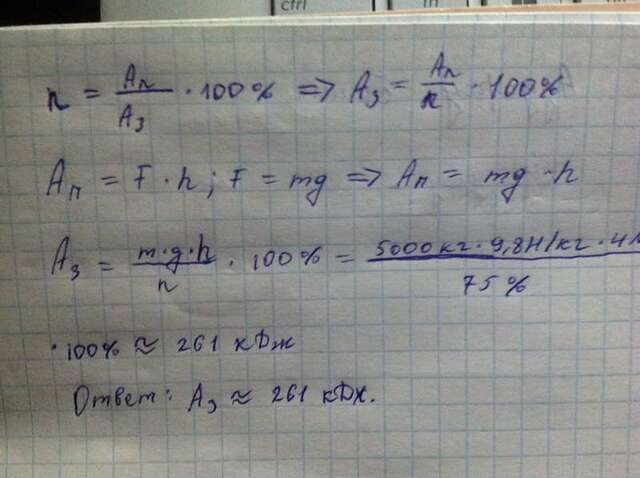 ctrl
n = Aп/Aз · 100% => Aз = Aп/n · 100%
Aп = F · h; F = mg => Aп = mg · h
Aз = m·g·h/n · 100% = 5000кг · 9,8Н/кг · 4м/75%
· 100% ≈ 261 кДж
Ответ: Aз ≈ 261 кДж.